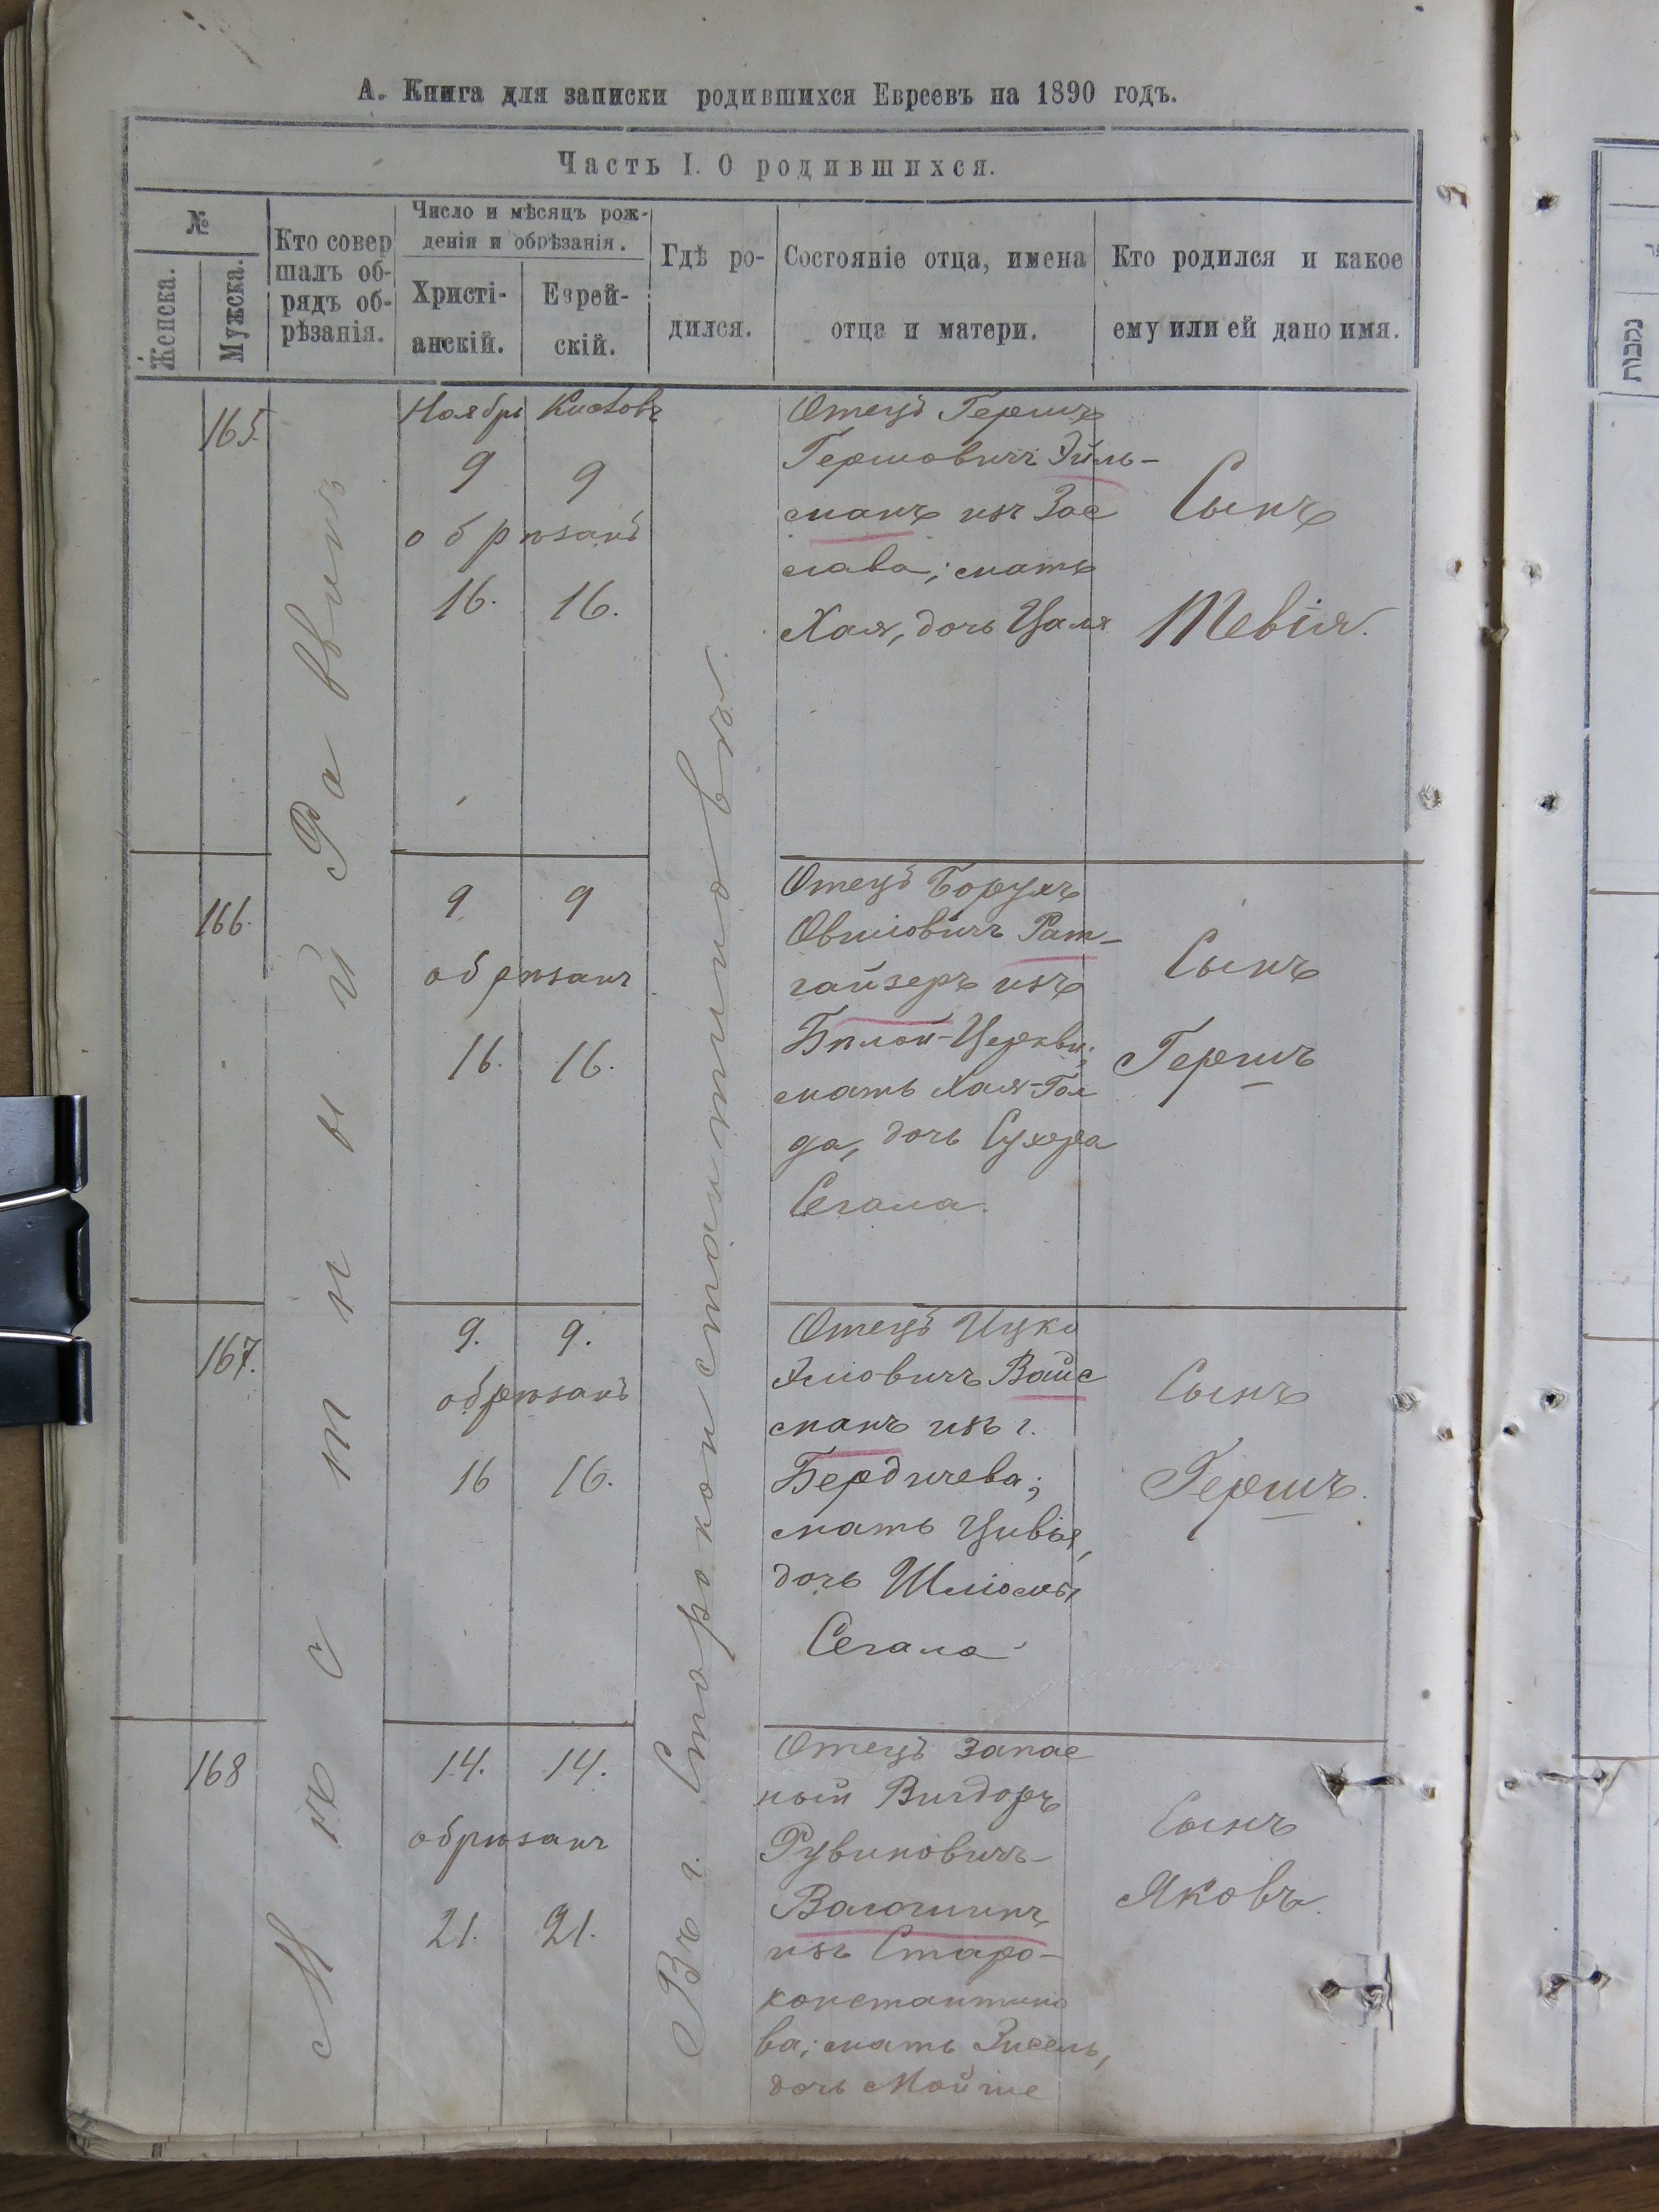 А. Книга для записки родившихся Евреевъ на 1890 годъ.
Часть I. О родившихся.
№
Женска.
Мужска.
Кто совер
шалъ об-
рядъ об-
рѣзанія.
Число и мѣсяцъ рож-
денія и обрѣзанія.
Христі-
анскій.
Еврей-
скій.
Гдѣ ро-
дился.
Состояніе отца, имена
отца и матери.
Кто родился и какое
ему или ей дано имя.
Мѣстный Раввинъ
Въ г. Староконстантиновѣ.
165.
Ноябрь
9
9
обрѣзанъ
16. 16.
Отецъ Гершъ
Гершовичъ Эйль-
манъ изъ Зас
лава; мать
Хая, дочь Цаля
Сынъ
Тевія.
166.
9 9
обрѣзанъ
16. 16.
Отецъ Борухъ
Овшіовичъ Рат-
гайзеръ изъ
Бѣлой-Церкви;
мать Хая-Гол
да, дочь Сухера
Сегала.
Сынъ
Гершъ
167.
9. 9.
обрѣзанъ
16 16.
Отецъ Ицко
Вайс
манъ изъ г.
Бердичева;
мать Цивья,
дочь Шліомы
Сегала
Сынъ
Гершъ.
168
14. 14.
обрѣзанъ
21. 21.
Отецъ запас
ный Вигдоръ
Рувиновичъ
Валошинъ,
изъ Старо-
константино
ва; мать Зисель,
дочь Мойше
Сынъ
Яковъ.
נקבות